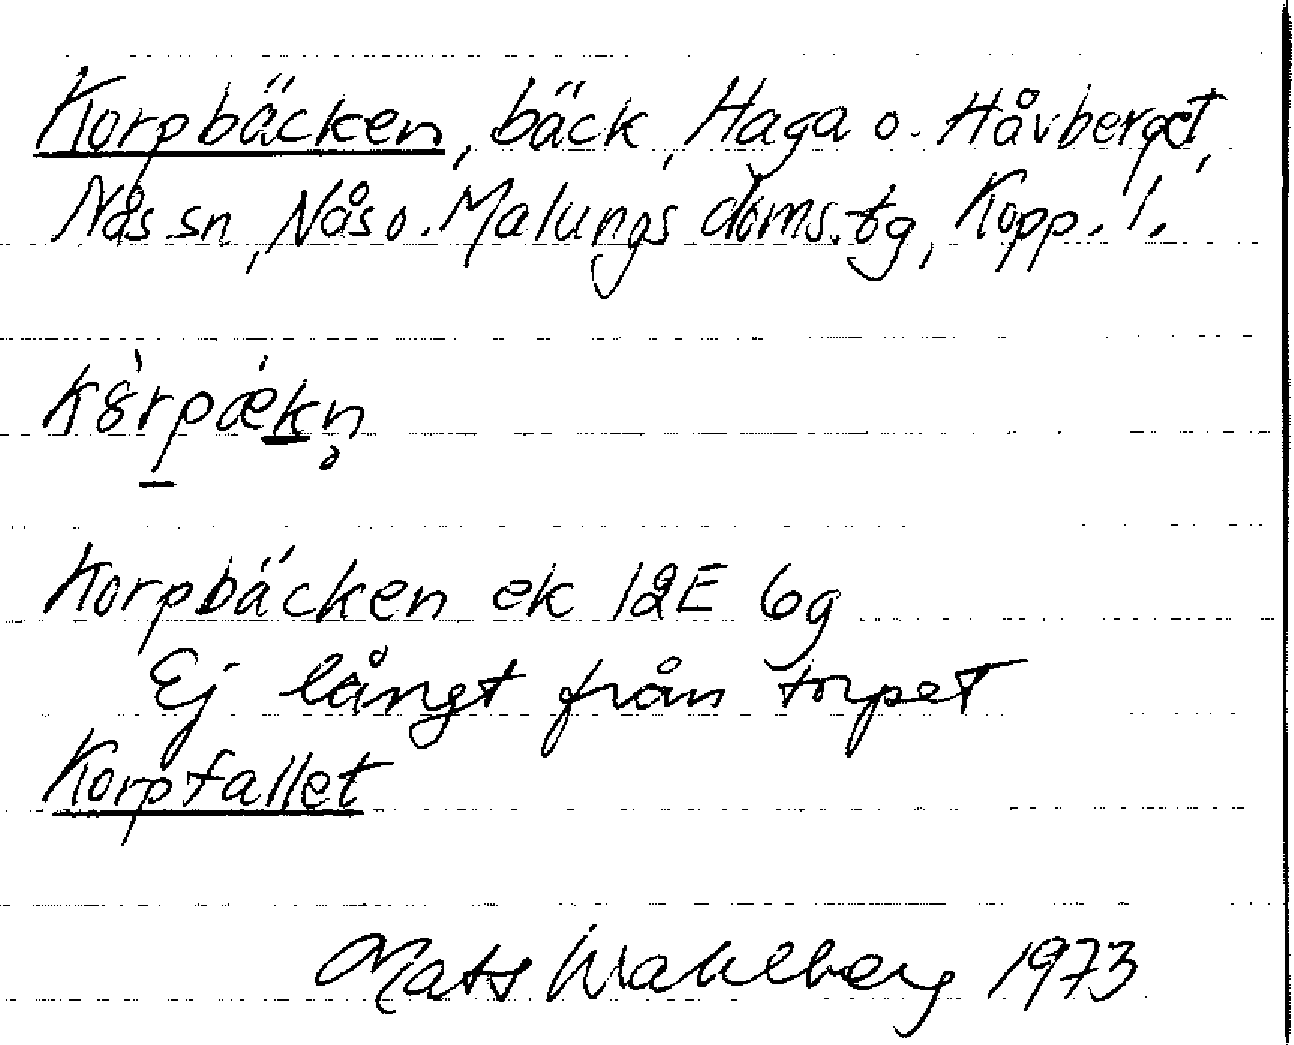 Korpbäcken, bäck, Haga o. Håvberget,
Nås sn, Nås o. Malungs doms. tg, Kopp. l.
Korpbäcken ek 12E 6g
Ej långt från torpet
Korpfallet
Mats Wahlberg 1973